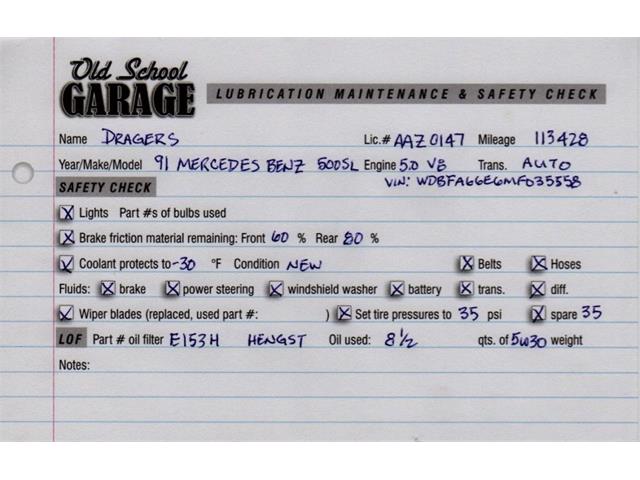 Old School
GARAGE
LUBRICATION MAINTENANCE & SAFETY CHECK
Name DRAGERS Lic.# AAZ0147 Mileage 113428
Year/Make/Model 91 MERCEDES BENZ 500SL Engine 5.0 V8 Trans. AUTO
VIN: WDBFA66E6MF035558
SAFETY CHECK
Lights Part #s of bulbs used
Brake friction material remaining: Front 60 % Rear 80 %
Coolant protects to -30 °F Condition NEW Belts Hoses
Fluids: brake power steering windshield washer battery trans. diff.
Wiper blades (replaced, used part #: ) Set tire pressures to 35 psi spare 35
LOF Part # oil filter E153H HENGST Oil used: 8 1/2 qts. of 5W30 weight
Notes: